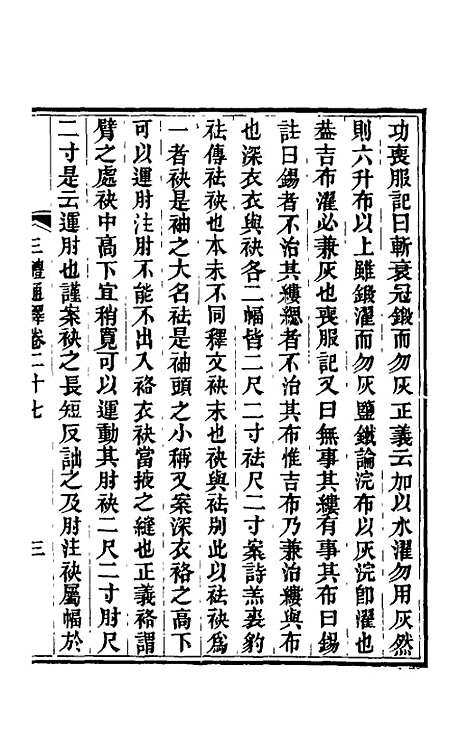 功喪服記曰斬衰冠鍛而勿灰正義云加以水濯勿用灰然
則六升布以上雖鍛濯而勿灰鹽鐵論浣布以灰浣卽濯也
葢吉布濯必兼灰也喪服記又曰無事其縷有事其布曰錫
註曰錫者不治其縷緦者不治其布惟吉布乃兼治縷與布
也深衣衣與袂各二幅皆二尺二寸袪尺二寸案詩羔裘豹
袪傳袪袂也本末不同釋文袂末也袂與袪別此以袪袂爲
一者袂是袖之大名袪是袖頭之小稱又案深衣袼之高下
可以運肘注肘不能不出入袼衣袂當掖之縫也正義袼謂
臂之處袂中高下宜稍寬可以運動其肘袂二尺二寸肘尺
二寸是云運肘也謹案袂之長短反詘之及肘注袂屬幅於
三禮通釋卷二十七
三